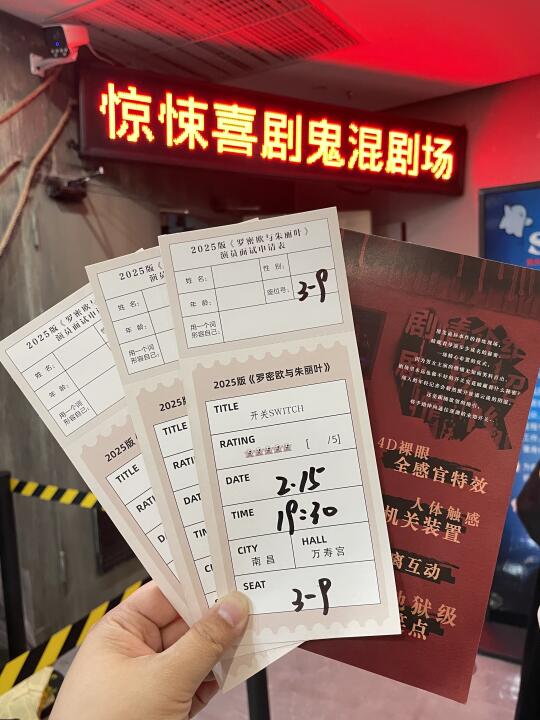 惊悚喜剧鬼混剧场
2025版《罗密欧与朱丽叶》
演员面试申请表
姓名：
性别：
年龄：
座位号：
3-9
用一个词
形容自己：
2025版《罗密欧与朱丽叶》
TITLE
开关SWITCH
RATING
[ /5]
DATE
2.15
TIME
19:30
CITY
南昌
HALL
万寿宫
SEAT
3-9
2025版《罗密欧与朱丽叶》
演员面试申请表
姓名：
年龄：
用一个词
形容自己：
2025版
TITLE
RATI
DATE
TIME
CIT
SEA
2025版《罗密欧
演员面试
姓名：
年龄：
用一个词
形容自己：
2025版
TITLE
RATIN
DATE
TIME
CITY
SEAT
4D裸眼
全感官特效
人体触感
机关装置
离互动
地狱级
笑点
S